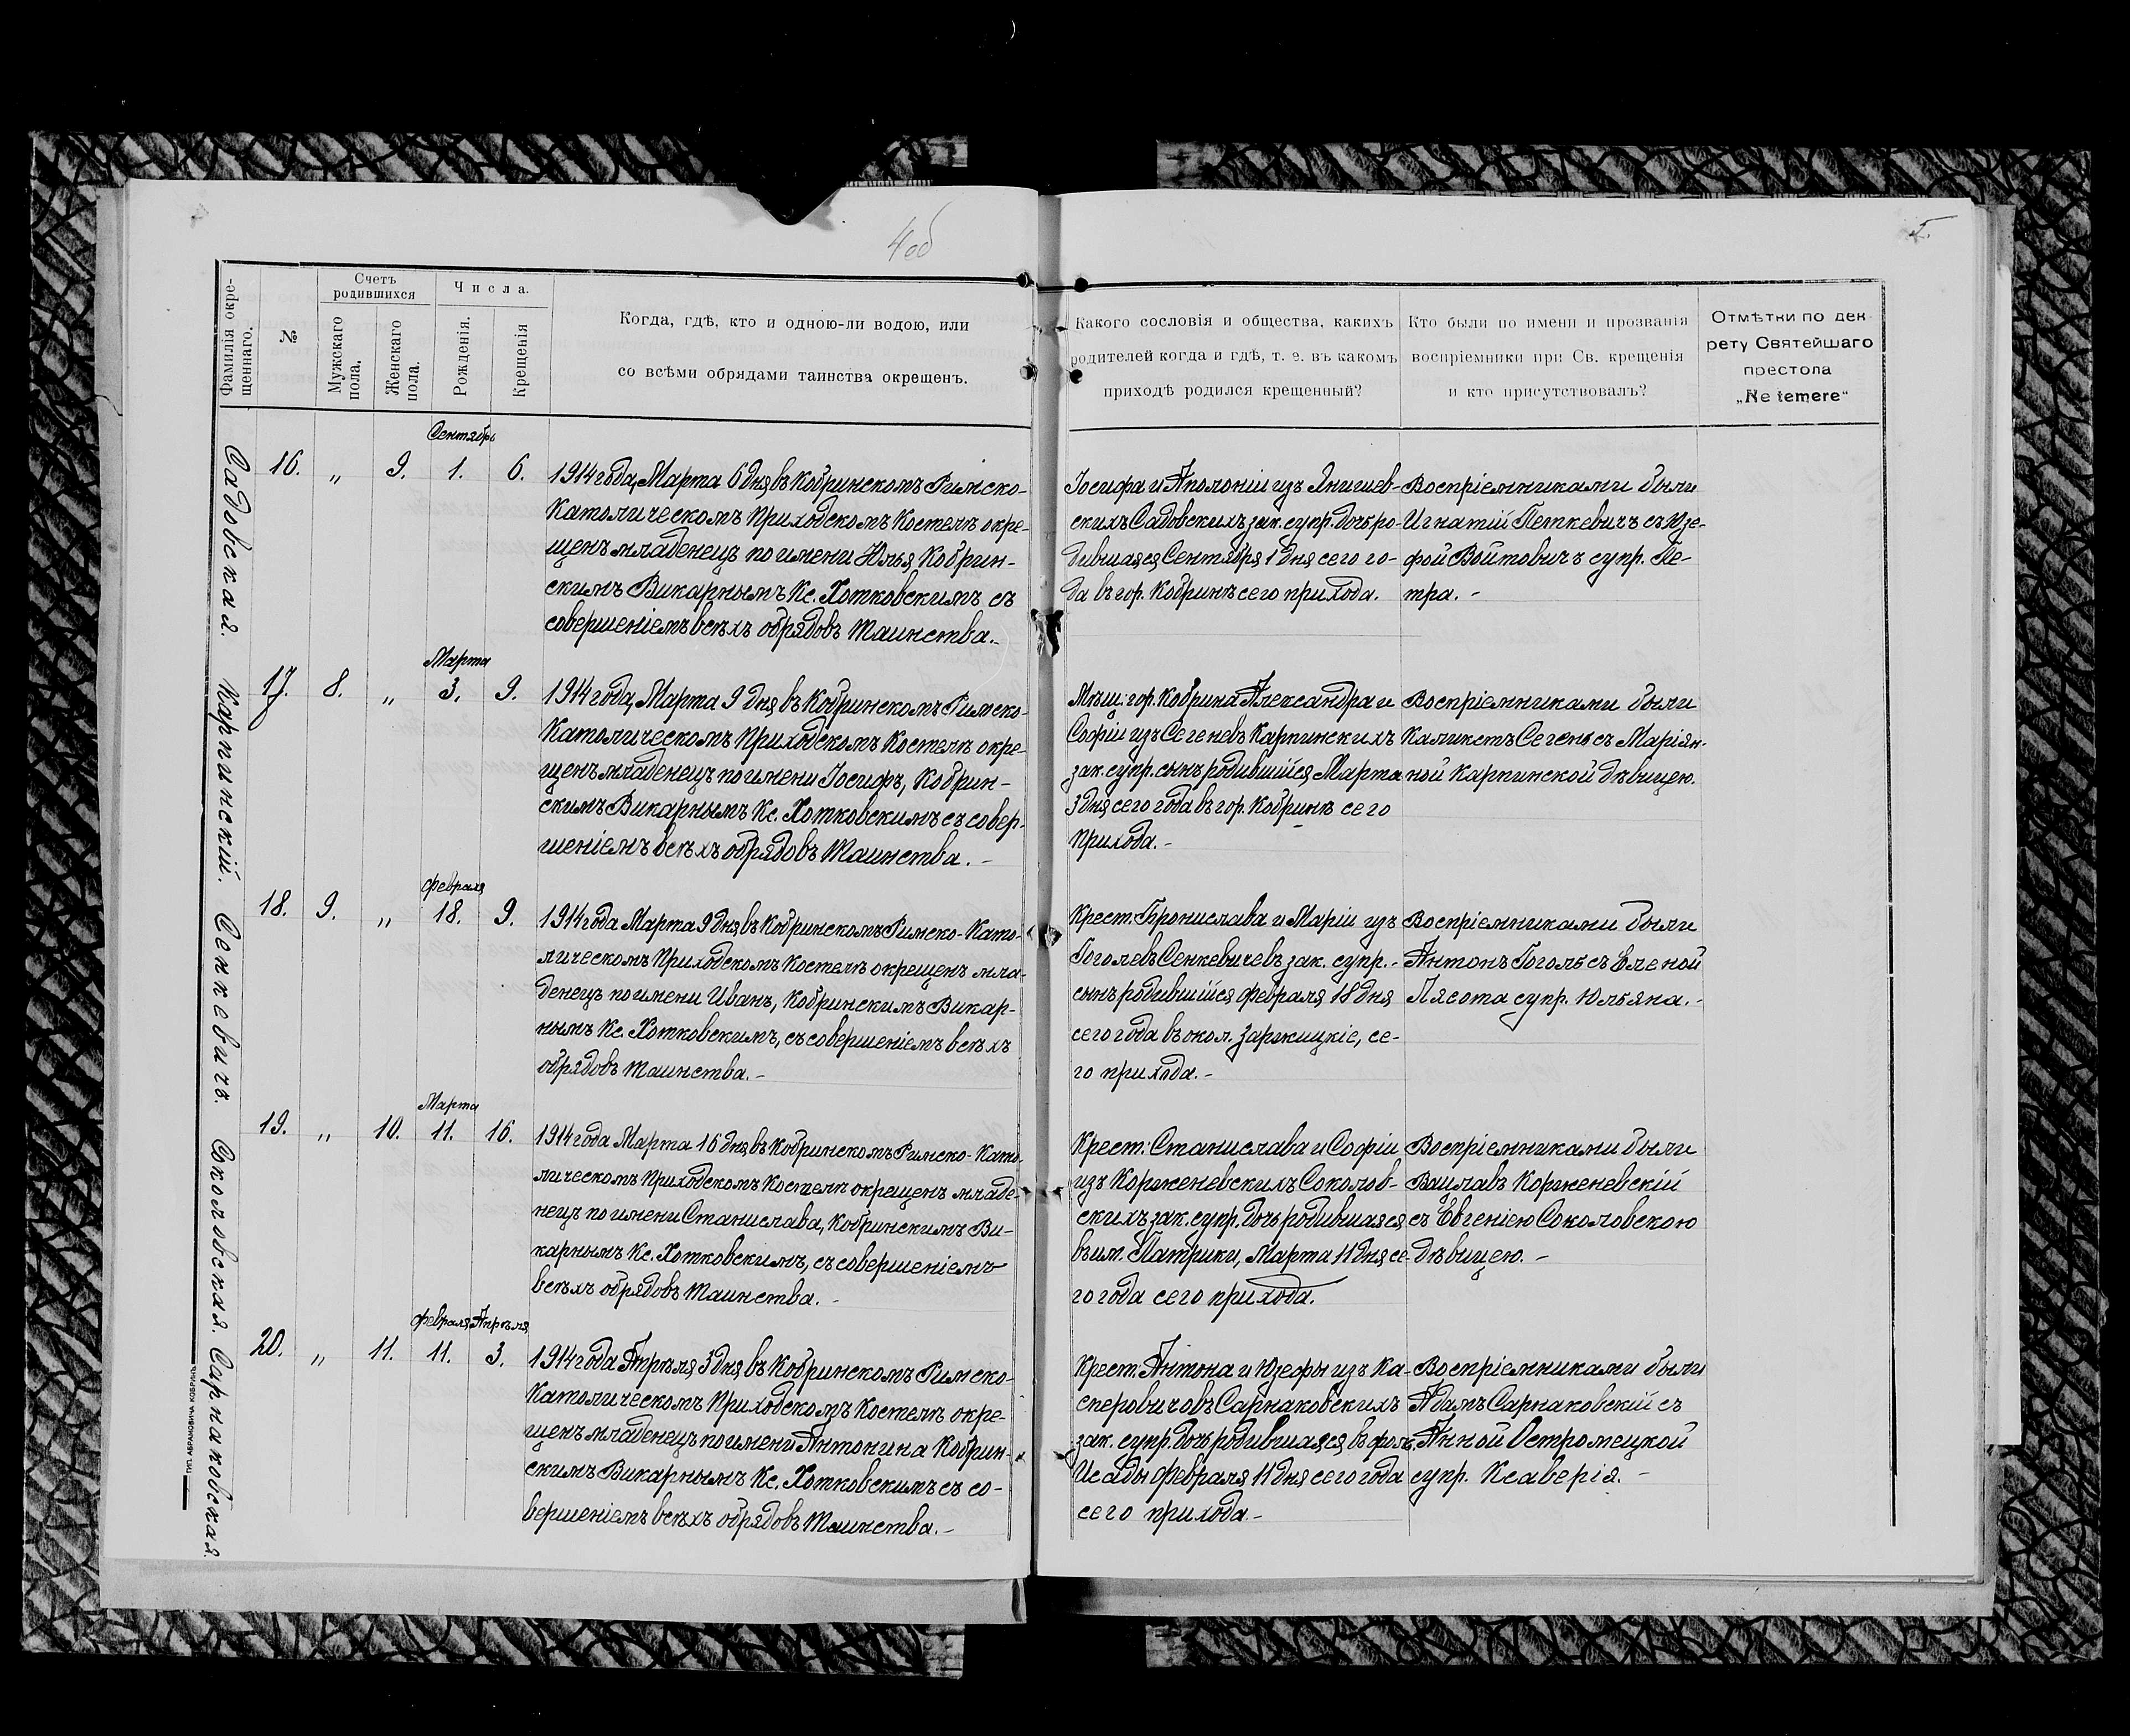 4об
5.
Фамилія окре-
щеннаго.
№
Счетъ
родившихся
Мужскаго
пола.
Женскаго
пола.
Числа.
Рожденія.
Крещенія
Когда, гдѣ, кто и одною-ли водою, или
со всѣми обрядами таинства окрещенъ.
Какого сословія и общества, какихъ
родителей когда и гдѣ, т. е. въ какомъ
приходѣ родился крещенный?
Кто были по имени и прозванія
воспріемники при Св. крещенія
и кто присутствовалъ?
Отмѣтки по дек
рету Святейшаго
престола
„Ne temere“
Садовская.
Сентябрь
16. „ 9. 1. 6.
1914 года, Марта 6 дня въ Кобринскомъ Римско-
Католическомъ Приходскомъ Костелѣ окре-
щенъ младенецъ по имени Юлья, Кобрин-
скимъ Викарнымъ Кс. Хотковскимъ съ
совершеніемъ всѣхъ обрядовъ Таинства.-
Іосифа и Аполоніи изъ Янишев-
скихъ Садовскихъ зак. супр. дочь ро-
дившаяся Сентября 1 дня сего го-
да въ гор. Кобринѣ сего прихода.
Воспріемниками были
Игнатій Петкевичъ съ Юзе-
фой Войтовичъ супр. Пе-
тра. -
Карпинскій.
Марта
17. 8. „ 3. 9.
1914 года, Марта 9 дня въ Кобринскомъ Римско-
Католическомъ Приходскомъ Костелѣ окре-
щенъ младенецъ по имени Іосифъ, Кобрин-
скимъ Викарнымъ Кс. Хотковскимъ съ совер-
шеніемъ всѣхъ обрядовъ Таинства. -
Мѣщ. гор. Кобрина Александра и
Софіи изъ Сегеневъ Карпинскихъ
зак. супр. сынъ родившійся Марта
3 дня сего года въ гор. Кобринѣ сего
прихода. -
Воспріемниками были
Каликстъ Сегень съ Маріян-
ной Карпинской дѣвицею.
Сенкевичъ.
Февраля
18. 9. „ 18. 9.
1914 года Марта 9 дня въ Кобринскомъ Римско-Като-
лическомъ Приходскомъ Костелѣ окрещенъ мла-
денецъ по имени Иванъ, Кобринскимъ Викар-
нымъ Кс. Хотковскимъ, съ совершеніемъ всѣхъ
обрядовъ Таинства. -
Крест. Бронислава и Маріи изъ
Гоголевъ Сенкевичевъ зак. супр. -
сынъ родившійся Февраля 18 дня
сего года въ окол. Заржицкіе, се-
го прихода. -
Воспріемниками были
Антонъ Гоголь съ Еленой
Лясота супр. Юльяна. -
Сокольовская.
Марта
19. „ 10. 11. 16.
1914 года Марта 16 дня въ Кобринскомъ Римско-Като-
лическомъ Приходскомъ Костелѣ окрещенъ младе-
нецъ по имени Станислава, Кобринскимъ Ви-
карнымъ Кс. Хотковскимъ, съ совершеніемъ
всѣхъ обрядовъ Таинства. -
Крест. Станислава и Софіи
изъ Корженевскихъ Соколов-
скихъ зак. супр. дочь родившаяся
въ им. Патрики, Марта 11 дня се-
го года сего прихода.
Воспріемниками были
Вацлавъ Корженевскій
съ Евгеніею Соколовскою
дѣвицею. -
Сарнаковская.
Февраля Апрѣля
20. „ 11. 11. 3.
1914 года Апрѣля 3 дня въ Кобринскомъ Римско-
Католическомъ Приходскомъ Костелѣ окре-
щенъ младенецъ по имени Антонина Кобрин-
скимъ Викарнымъ Кс. Хотковскимъ съ со-
вершеніемъ всѣхъ обрядовъ Таинства. -
Крест. Антона и Юзефы изъ Ка-
сперовичовъ Сарнаковскихъ
зак. супр. дочь родившаяся въ фоль.
Исады Февраля 11 дня сего года
сего прихода. -
Воспріемниками были
Адамъ Сарнаковскій съ
Анной Остромецкой
супр. Ксаверія. -
ТИП. АБРАМОВИЧА КОБРИНЪ